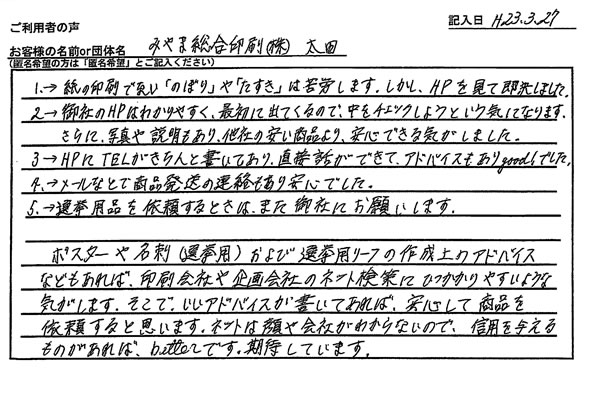 ご利用者の声
記入日 H23.3.27
お客様の名前or団体名 みやま総合印刷(株) 太田
(匿名希望の方は「匿名希望」とご記入ください)
1.→紙の印刷で良い「のぼり」や「たすき」は苦労します。しかし、HPを見て即決しました。
2→御社のHPはわかりやすく、最初に出てくるので、中をチェックしようという気になります。
さらに、写真や説明もあり、他社の安い商品より、安心できる気がしました。
3→HPにTELがきちんと書いてあり、直接話ができて、アドバイスもありgood!でした。
4.→メールなどで商品発送の連絡もあり安心でした。
5.→選挙用品を依頼するときは、また御社にお願いします。
ポスターや名刺(選挙用)および選挙用リーフの作成上のアドバイス
などもあれば、印刷会社や企画会社のネット検索にひっかかりやすいような
気がします。そこで、いいアドバイスが書いてあれば、安心して商品を
依頼すると思います。ネットは顔や会社がわからないので、信用を与える
ものがあれば、betterです。期待しています。